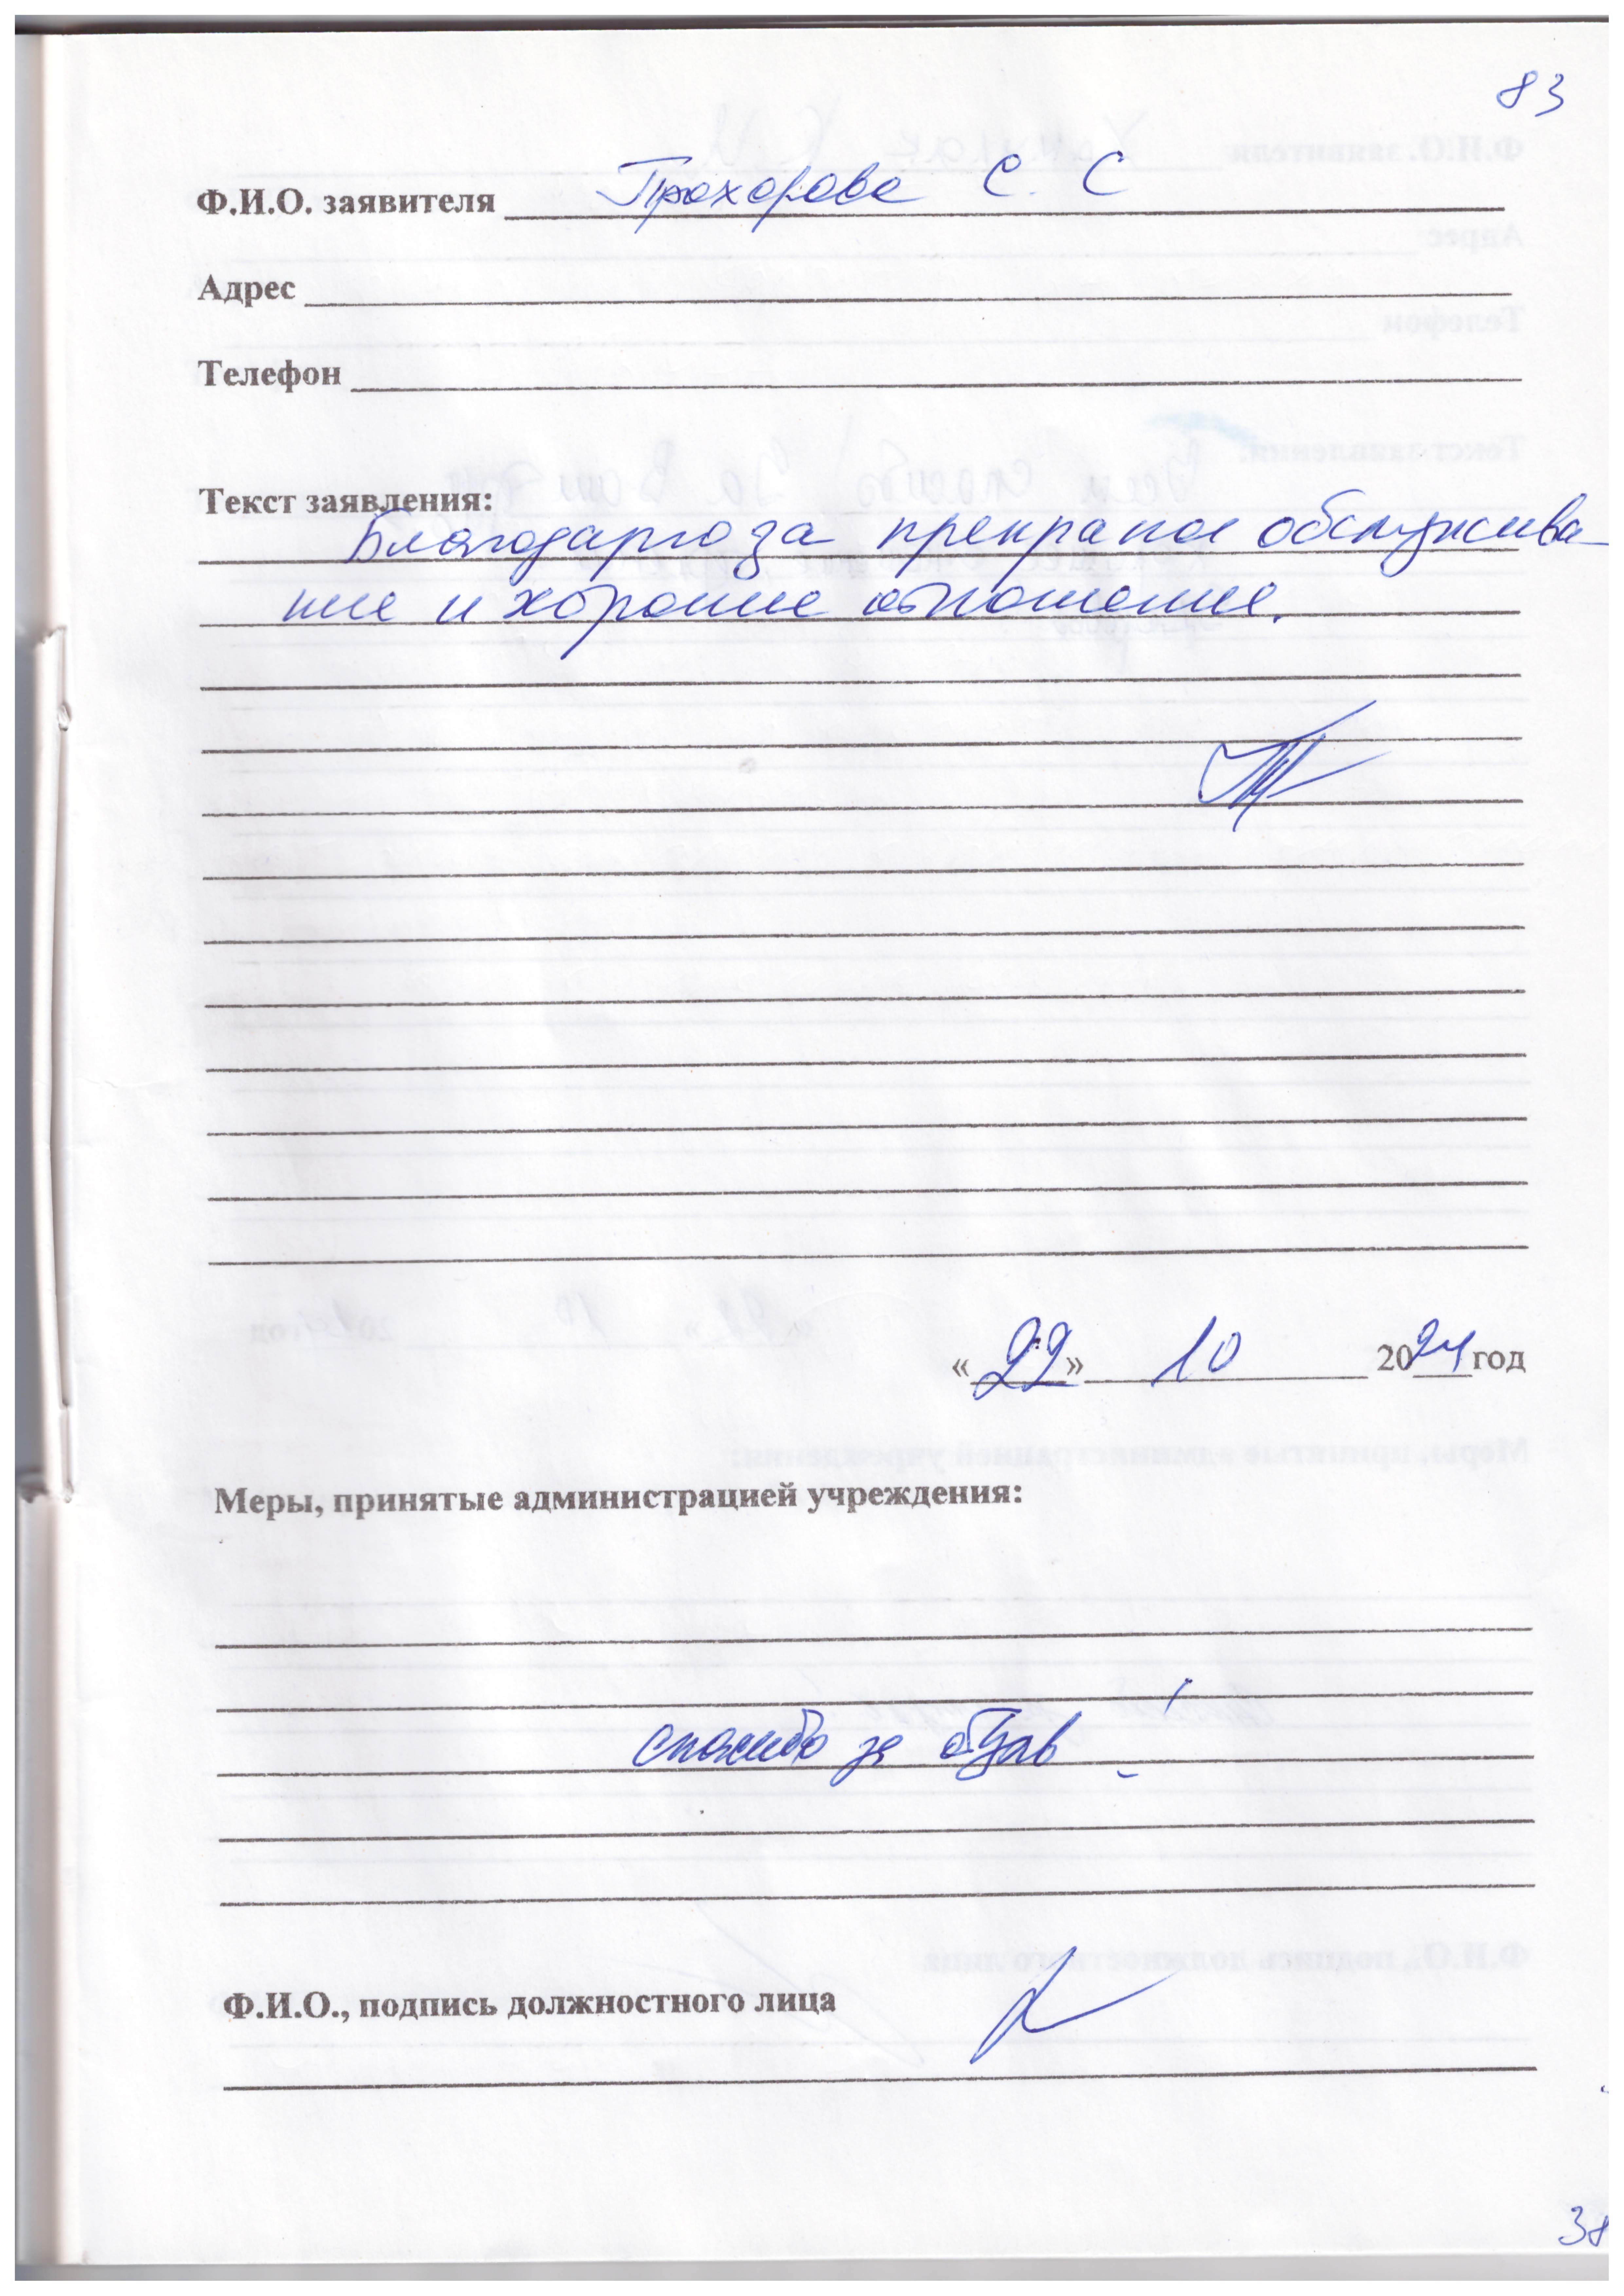 83
Ф.И.О. заявителя Прохорова С. С
Адрес
Телефон
Текст заявления:
Благодарю за прекрасное обслужива-
ние и хорошие отношение.
«22» 10 2024 год
Меры, принятые администрацией учреждения:
спасибо за отзыв !
Ф.И.О., подпись должностного лица
38